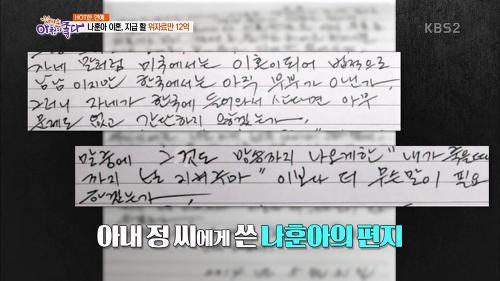 HOT한 연예
나훈아 이혼, 지급 할 위자료만 12억
KBS2
자네 말처럼 미국에서는 이혼이 되어 법적으로
남남 이지만 한국에서는 아직 부부가 아닌가.
그러니 자네가 한국에 들어와서 산다면 아무
문제도 없고 간단하리
말중에 그것도 방송까지 나오게한 "내가 죽을때
까지 널 지켜주마" 이보다 더 무슨말이 필요
하겠는가
아내 정 씨에게 쓴 나훈아의 편지